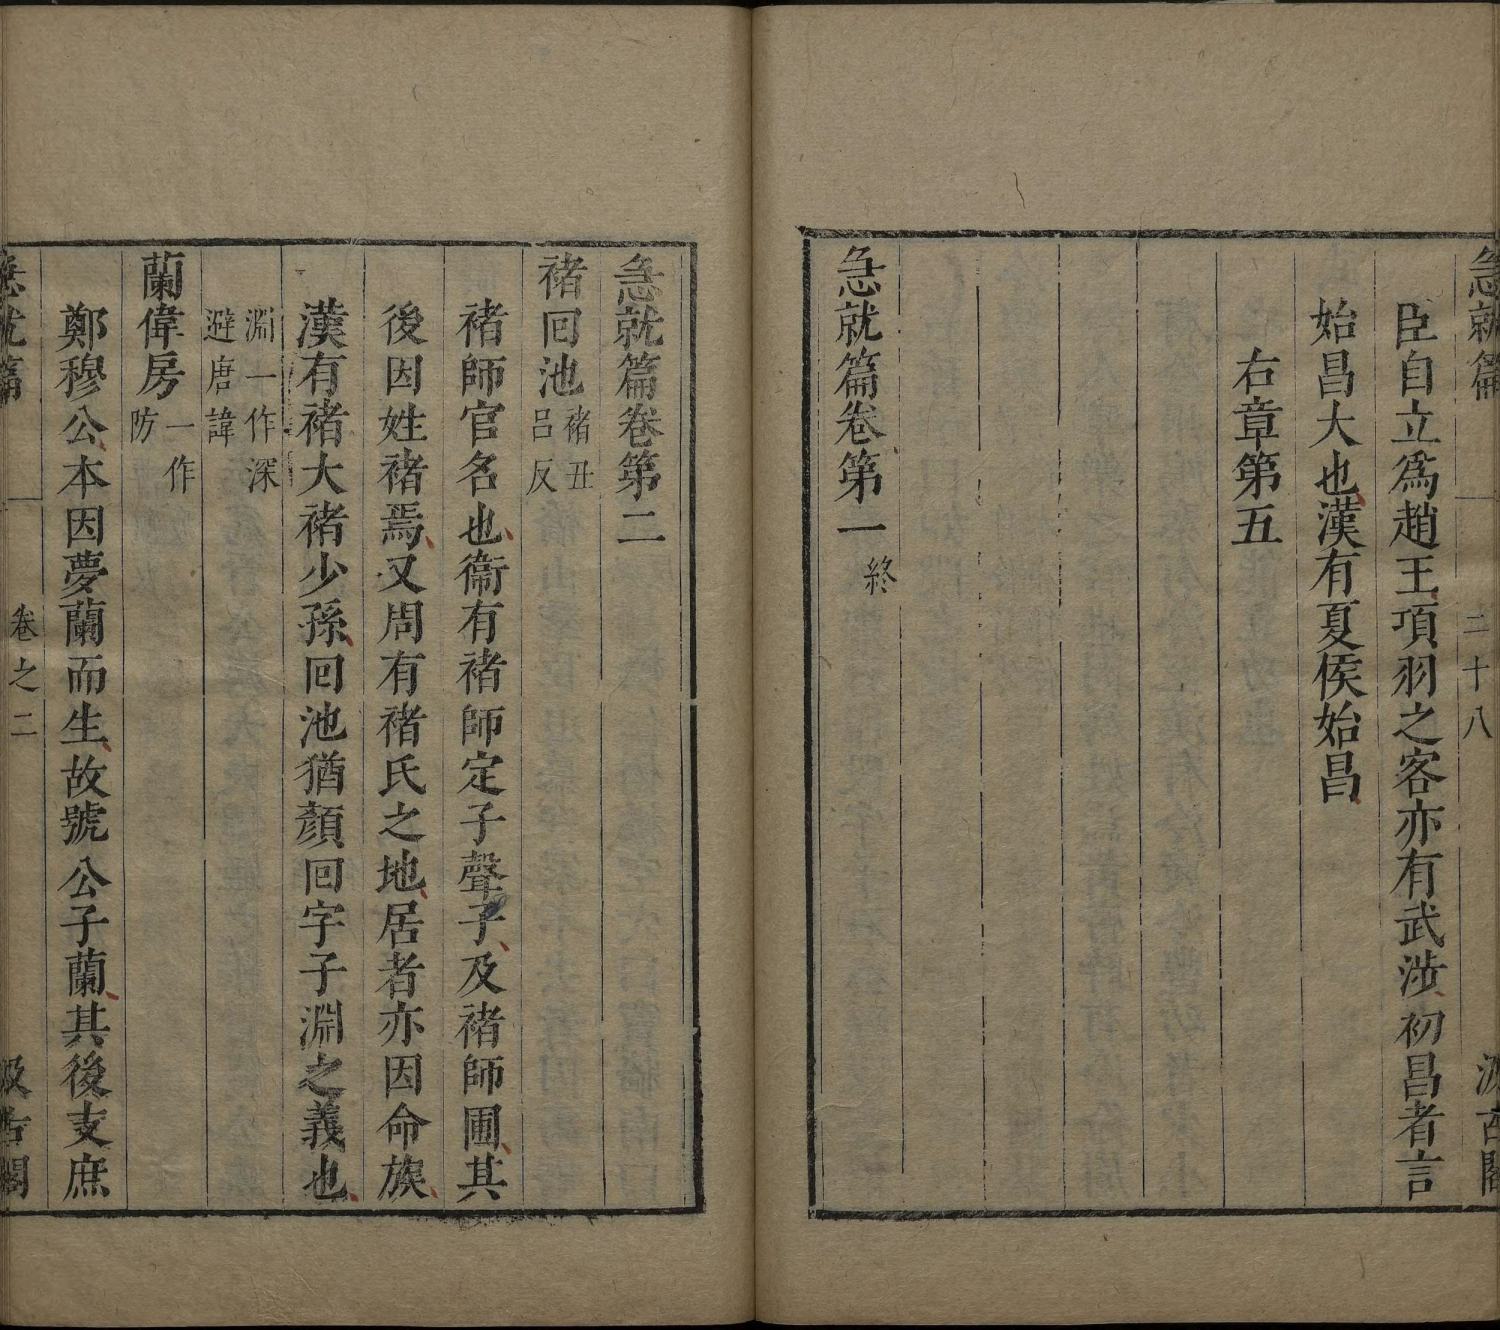 急就篇
二十八
汲古閣
臣自立爲趙王項羽之客亦有武涉初昌者言
始昌大也漢有夏侯始昌
右章第五
急就篇卷第一終
急就篇卷第二
褚回池褚丑呂反
褚師官名也衞有褚師定子聲子及褚師圃其
後因姓褚焉又周有褚氏之地居者亦因命族
漢有褚大褚少孫回池猶顏回字子淵之義也
淵一作深
避唐諱
蘭偉房一作防
鄭穆公本因夢蘭而生故號公子蘭其後支庶
急就篇
卷之二
汲古閣